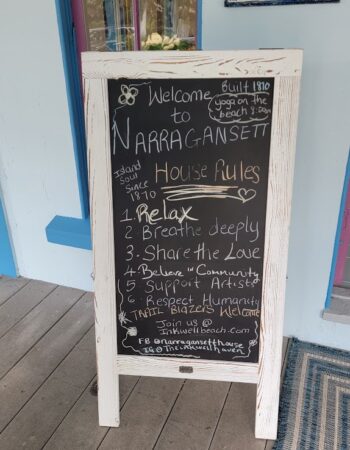 Welcome
to
Built 1870
yoga on the
beach 9:30am
NARRAGANSETT
Island
Soul
Since
1870
House Rules
1. Relax
2 Breathe deeply
3. Share the Love
4. Believe in Community
5 Support Artists
6. Respect Humanity
TRAIL Blazers Welcome
Join us @
Inkwellbeach.com
FB @narragansetthouse
IG@TheInkwellhaven